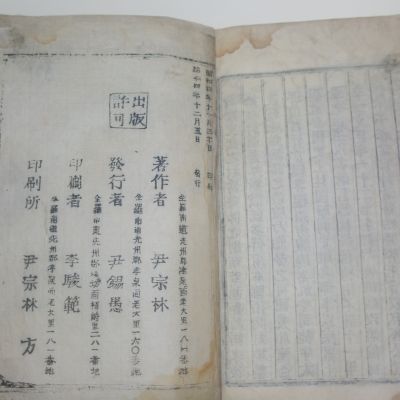 昭和四年十一月
印刷
昭和四年十二月五日
發行
出版
許可
全羅南道光州郡孝泉面老大里一八一番地
著作者 尹宗林
全羅南道光州郡孝泉面老大里一六〇番地
發行者 尹錫愚
全羅南道光州郡 面 里二八一番地
印刷者 李駿範
全羅南道光州郡孝泉面老大里一八一番地
印刷所 尹宗林 方